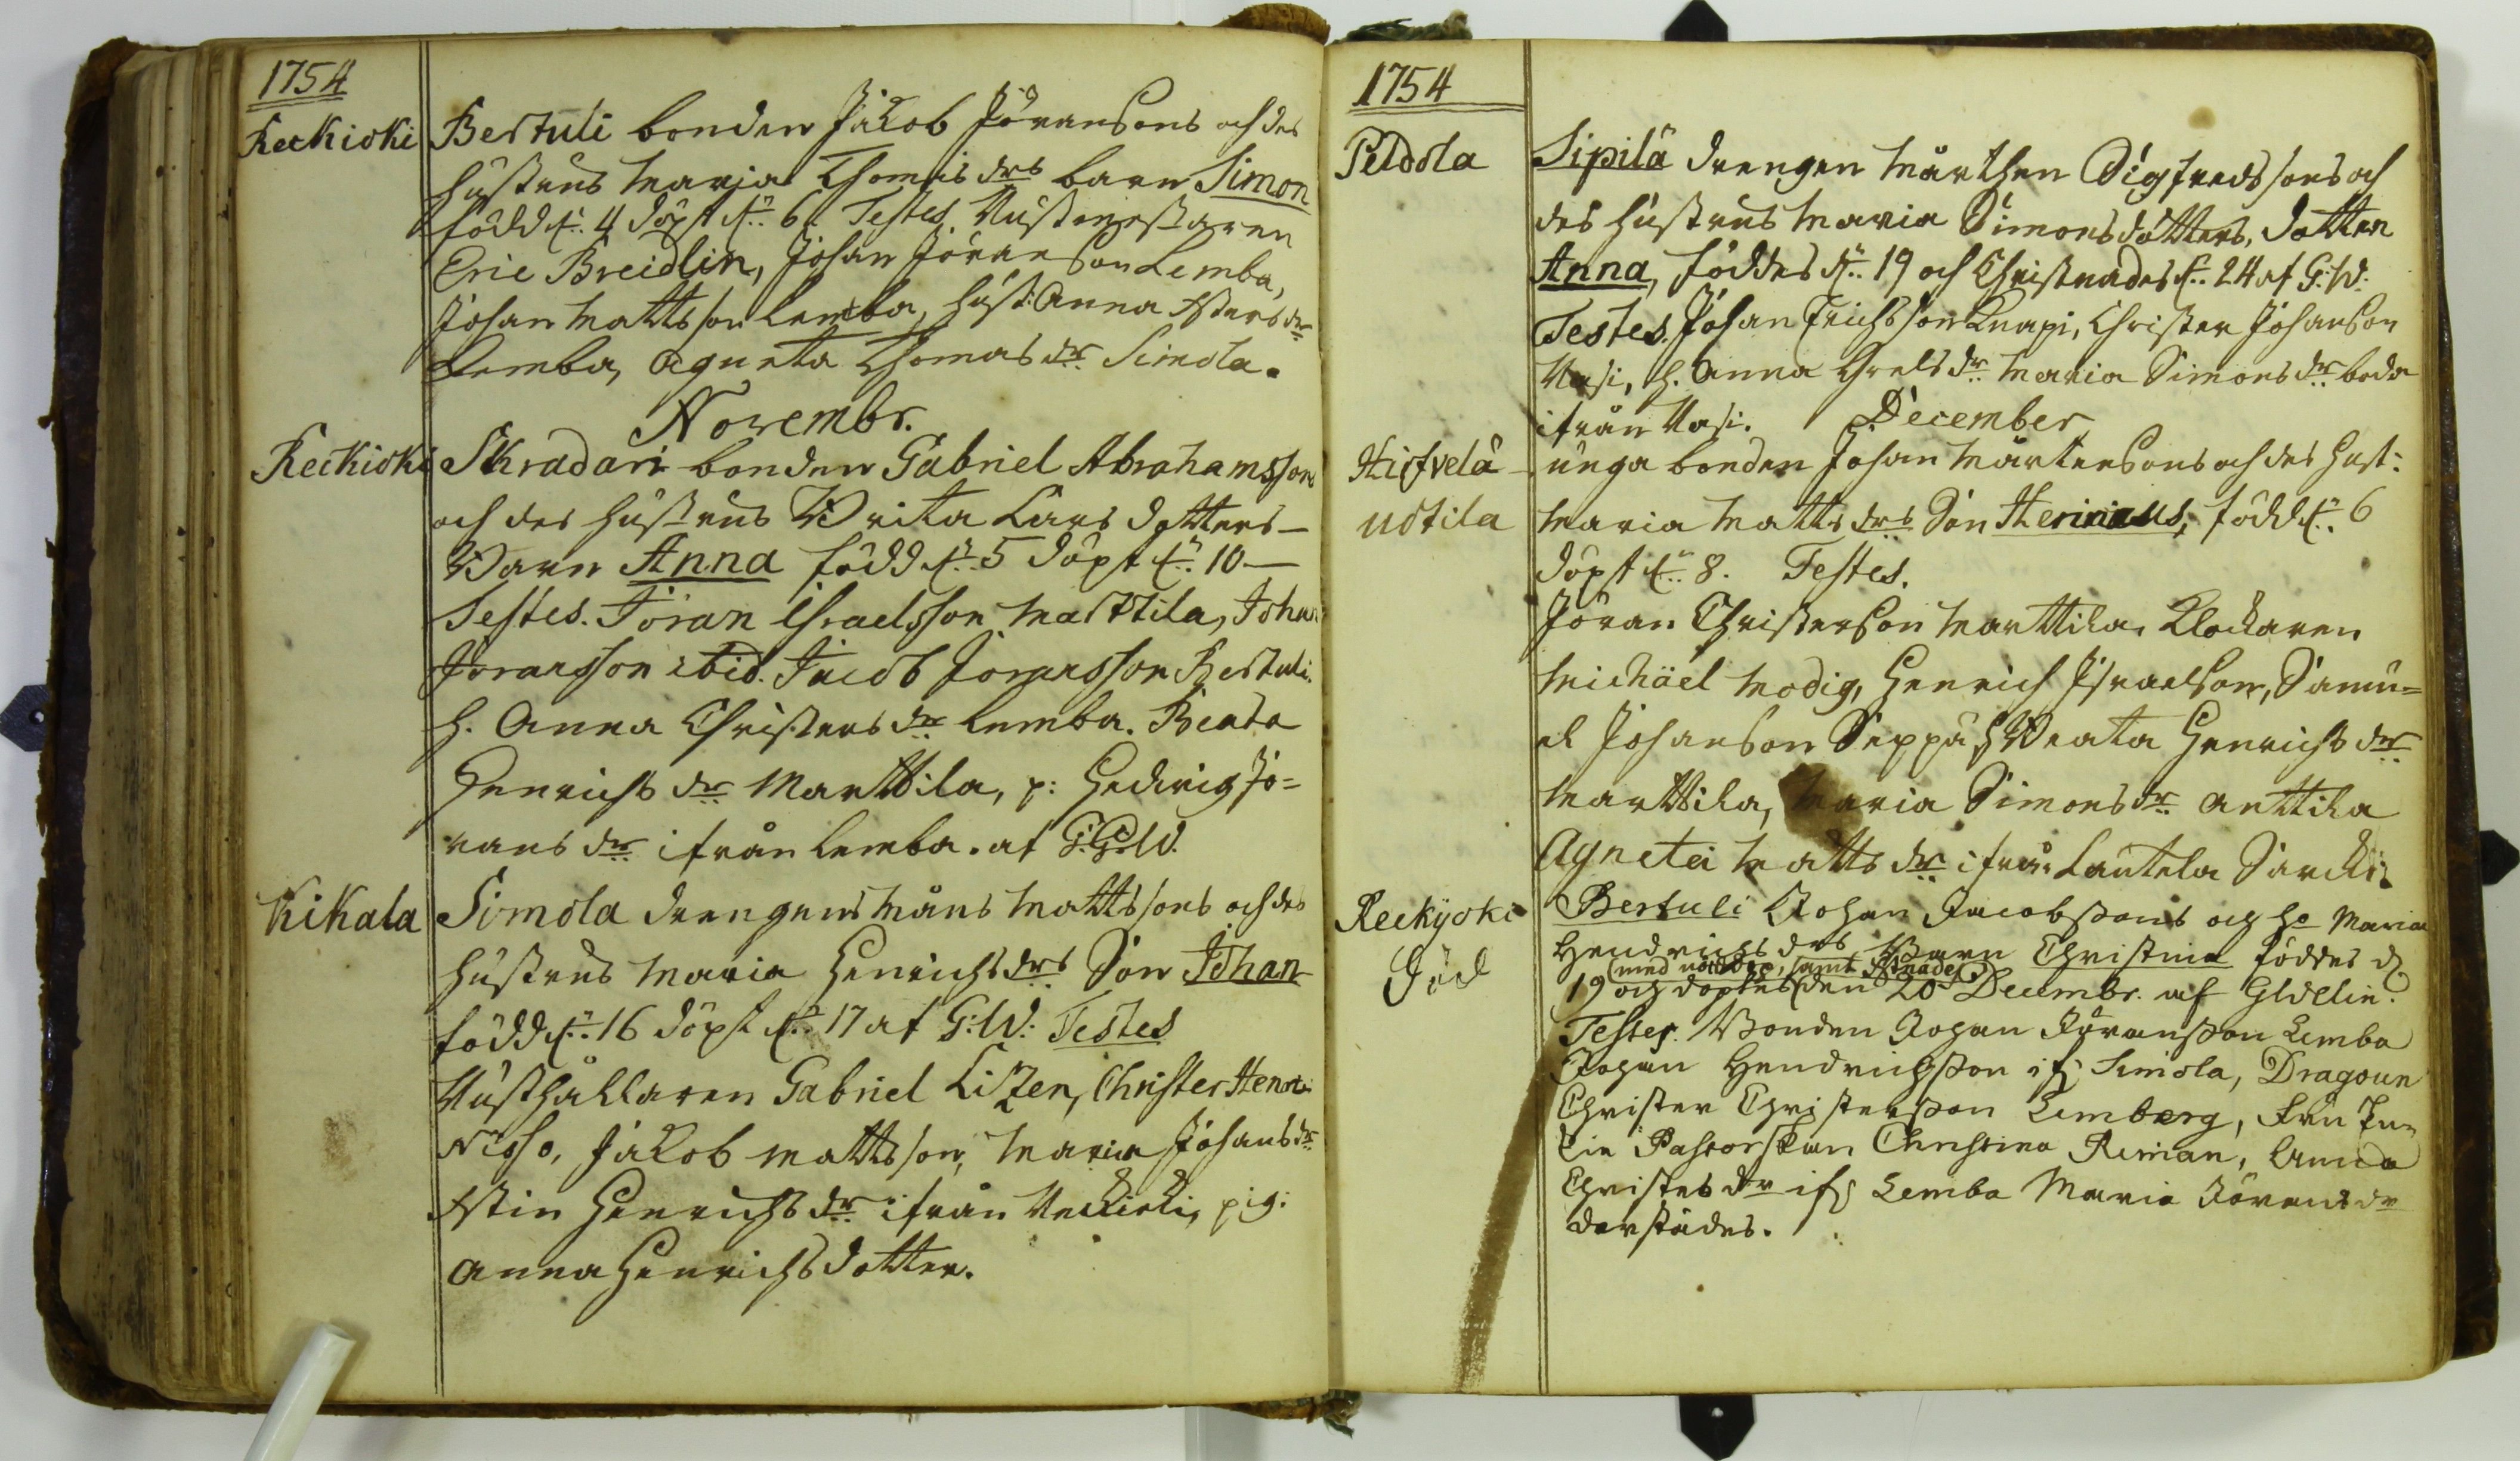 1754
Reckioki Bertuli bonden Jakob Jöransons och des
hustrus Maria Thomasdrs barn Simon
född d. 4 döpt d. 6. Testes. Rustmestaren
Eric Breidlin, Johan Jöranson Lemba,
Johan Mattsson Lemba, hust: Anna
Lemba, Agneta Thomasdr Simola.
Novembr.
Reckioki Skradari bonden Gabriel Abrahamssons
och des hustrus Brita Larsdotters
Barn Anna född d. 5 döpt d. 10
Testes. Jöran Israelsson Marttila, Johan
Joransson ibid. Jacob Joransson Bertuli.
h. Anna Christersdr Lemba. Beata
Henrichsdr Marttila, p: Hedvig Jö=
ransdr ifrån Lemba. af G.W.
Kikala Simola drengens Måns Mattssons och des
hustrus Maria Henrichsdrs Son Johan
född d. 16 döpt d. 17 af G:W: Testes
Rusthållaren Gabriel Lizen, Christer Henr:
Nisso, Jakob Mattsson, Maria Johansdr
Henrichsdr ifrån Reckioki, pig:
Anna Henrichsdotter.
1754
Peldola Sipilä drengen Mårthen Sigfredssons och
des hustrus Maria Simonsdotters, dotter
Anna, föddes d. 19 och Christnades d. 24 af G:W:
Testes. Johan Erichsson Knapi, Christer Johanson
Vasi, h. Anna Maria Simonsdr boda
ifrån Vasi. December
Hirfvelä unga bonden Johan Mårtensons och des hust:
uotila Maria Mattsdrs Son Herinaus, född d. 6
döpt d. 8. Testes.
Jöran Christerson Marttila. Klockaren
Michäel Modig, Henrich Israelson, Samu=
el Johanson Seppä, h. Beata Henrichsdr
Marttila, Maria Simonsdr Anttila
Agneta Mattsdr ifrån Lautela
Reckyoki Bertuli Johan Jacobssons och ho Maria
Död Hendrichsdrs Barn Christina föddes d.
(med nöddop, samt
19 och döptes den 20 Decembr. af
Testes. Bonden Johan Jöransson Lemba
Johan Hendrichsson if: Simola, Dragoun
Christer Christersson Lemberg, Fru
Pastorskan Christina Reman, Anna
Christersdr if: Lemba Maria Jöransdr
derstädes.